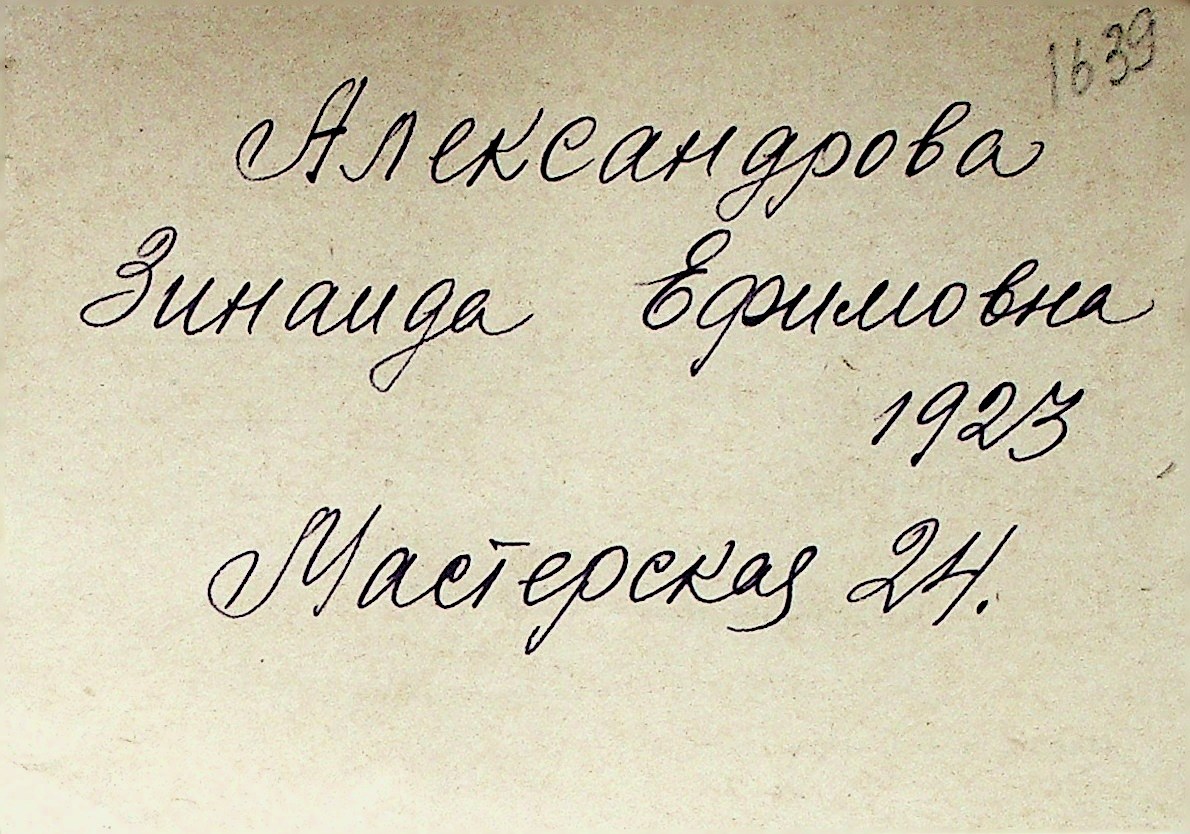 1639
Александрова
Зинаида Ефимовна
1923
Мастерская 24.